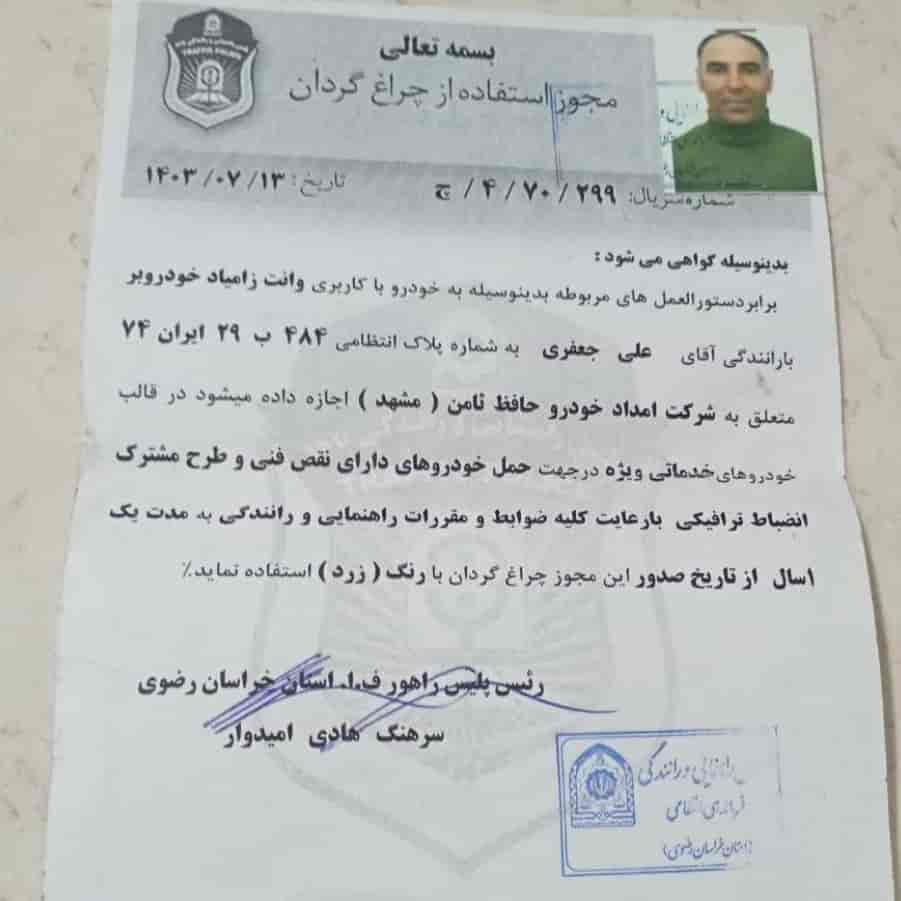 TRAFFIC POLICE
بسمه تعالی
مجوز استفاده از چراغ گردان
تاریخ: ۱۴۰۳/۰۷/۱۳
شماره سریال: ۲۹۹ / ۷۰ / ۴ / ج
بدینوسیله گواهی می شود :
برابردستورالعمل های مربوطه بدینوسیله به خودرو با کاربری وانت زامیاد خودروبر
بارانندگی آقای علی جعفری به شماره پلاک انتظامی ۴۸۴ ب ۲۹ ایران ۷۴
متعلق به شرکت امداد خودرو حافظ ثامن ( مشهد ) اجازه داده میشود در قالب
خودروهای خدماتی ویژه درجهت حمل خودروهای دارای نقص فنی و طرح مشترک
انضباط ترافیکی بارعایت کلیه ضوابط و مقررات راهنمایی و رانندگی به مدت یک
۱سال از تاریخ صدور این مجوز چراغ گردان با رنگ ( زرد ) استفاده نماید.٪
رئیس پلیس راهور ف.ا. استان خراسان رضوی
سرهنگ هادی امیدوار
راهنمایی و رانندگی
فرماندهی انتظامی
(استان خراسان رضوی)